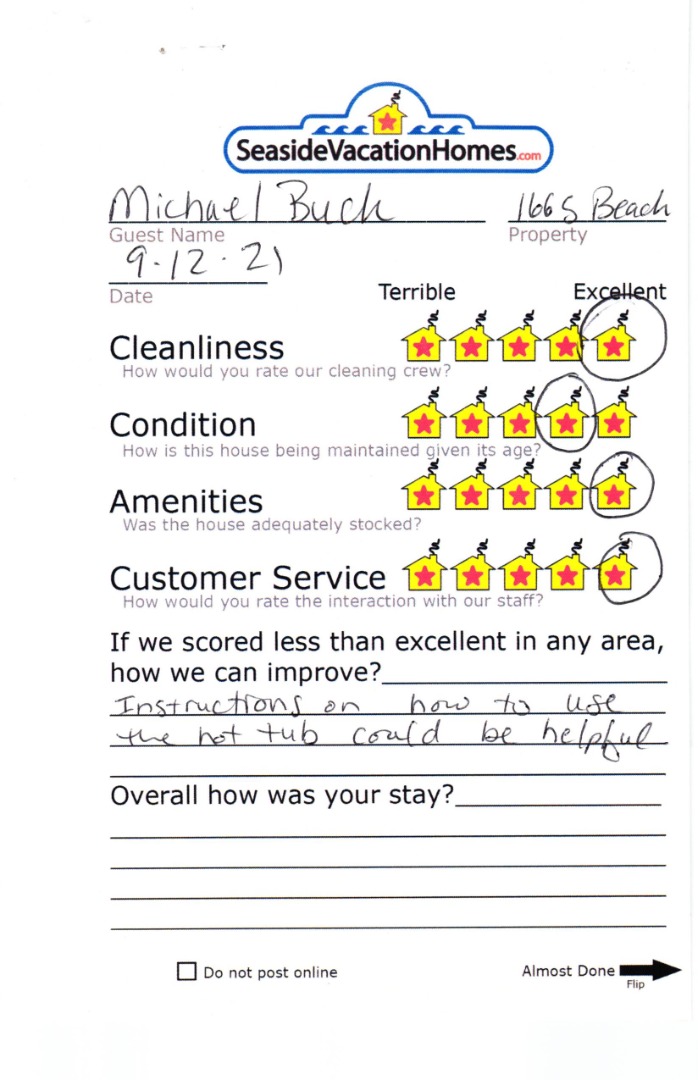 SeasideVacationHomes.com
Michael Buck 166 S Beach
Guest Name Property
9.12.21
Date Terrible Excellent
Cleanliness
How would you rate our cleaning crew?
Condition
How is this house being maintained given its age?
Amenities
Was the house adequately stocked?
Customer Service
How would you rate the interaction with our staff?
If we scored less than excellent in any area,
how we can improve?
Instructions on how to use
the hot tub could be helpful
Overall how was your stay?
Do not post online Almost Done
Flip